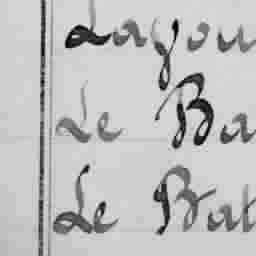 Layou
Le Ba
Le Bat